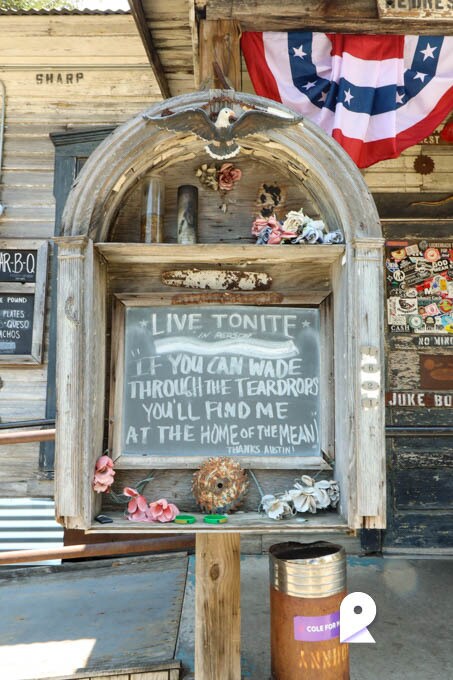 SHARP
LIVE TONITE
IN PERSON
"IF YOU CAN WADE
THROUGH THE TEARDROPS
YOU'LL FIND ME
AT THE HOME OF THE MEAN!"
THANKS AUSTIN!
R-B-Q
POUND
PLATES
QUESO
NACHOS
CASH
NO
JUKE BO
COLE FOR